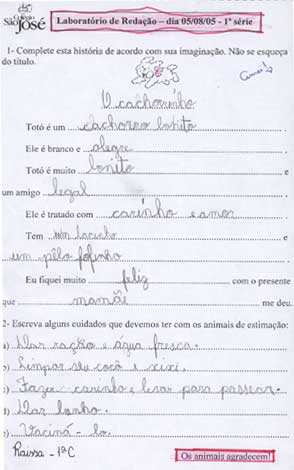 Colégio
São José
Laboratório de Redação – dia 05/08/05 - 1ª série
1- Complete esta história de acordo com sua imaginação. Não se esqueça
do título.
O cachorrinho
Totó é um cachorro bonito
Ele é branco e alegre
Totó é muito bonito e
um amigo legal
Ele é tratado com carinho e amor
Tem um lacinho e
um pêlo fofinho
Eu fiquei muito feliz com o presente
que mamãe me deu.
2- Escreva alguns cuidados que devemos ter com os animais de estimação:
a) Dar ração e água fresca.
b) Limpar seu cocô e xixi.
c) Fazer carinho e levar para passear.
d) Dar banho.
e) Vaciná-lo.
Raissa - 1ª C
Os animais agradecem!